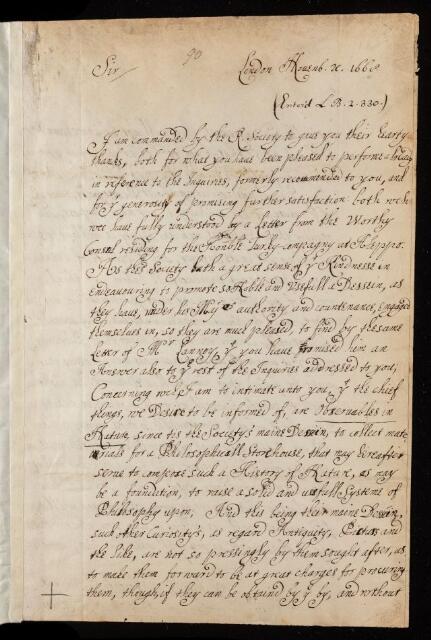 90
Sir
London Novemb. 1668
(Enter'd L.B. 2. 330.)
I am commanded by the R. Society to give you their hearty
thanks, both for what you have been pleased to performe already
in reference to the Inquiries, formerly recommended to you, and
for yr generosity of promising further satisfaction both wch
wee have fully understood by a Letter from the Worthy
Consul residing for the Honble Turky-company at Aleppo.
As the Society hath a great sense of yr Kindnesse in
endeavouring to promote so Noble and Usefull a Dessein, as
they have, under his Mys authority and countenance, engaged
themselves in, so they are much pleased, to find by the same
Letter of Mr Lannoy, yt you have promised him an
Answer also to ye rest of the Inquiries addressed to you,
Concerning wch I am to intimate unto you, yt the chief
things, we Desire to be informed of, are Observables in
Nature, since tis the Society's maine Dessein, to collect mate
rials for a Philosophicall Storehouse, that may hereafter
serve to compose such a History of Nature, as may
be a foundation, to raise a solid and usefull Systeme of
Philosophy upon, And this being their maine Dessein,
such other Curiosity's, as regard Antiquity, and
the like, are not so pressingly by them sought after, as
to make them forward to be at great charges for procuring
them, though, if they can be obtaind by ye by, and without